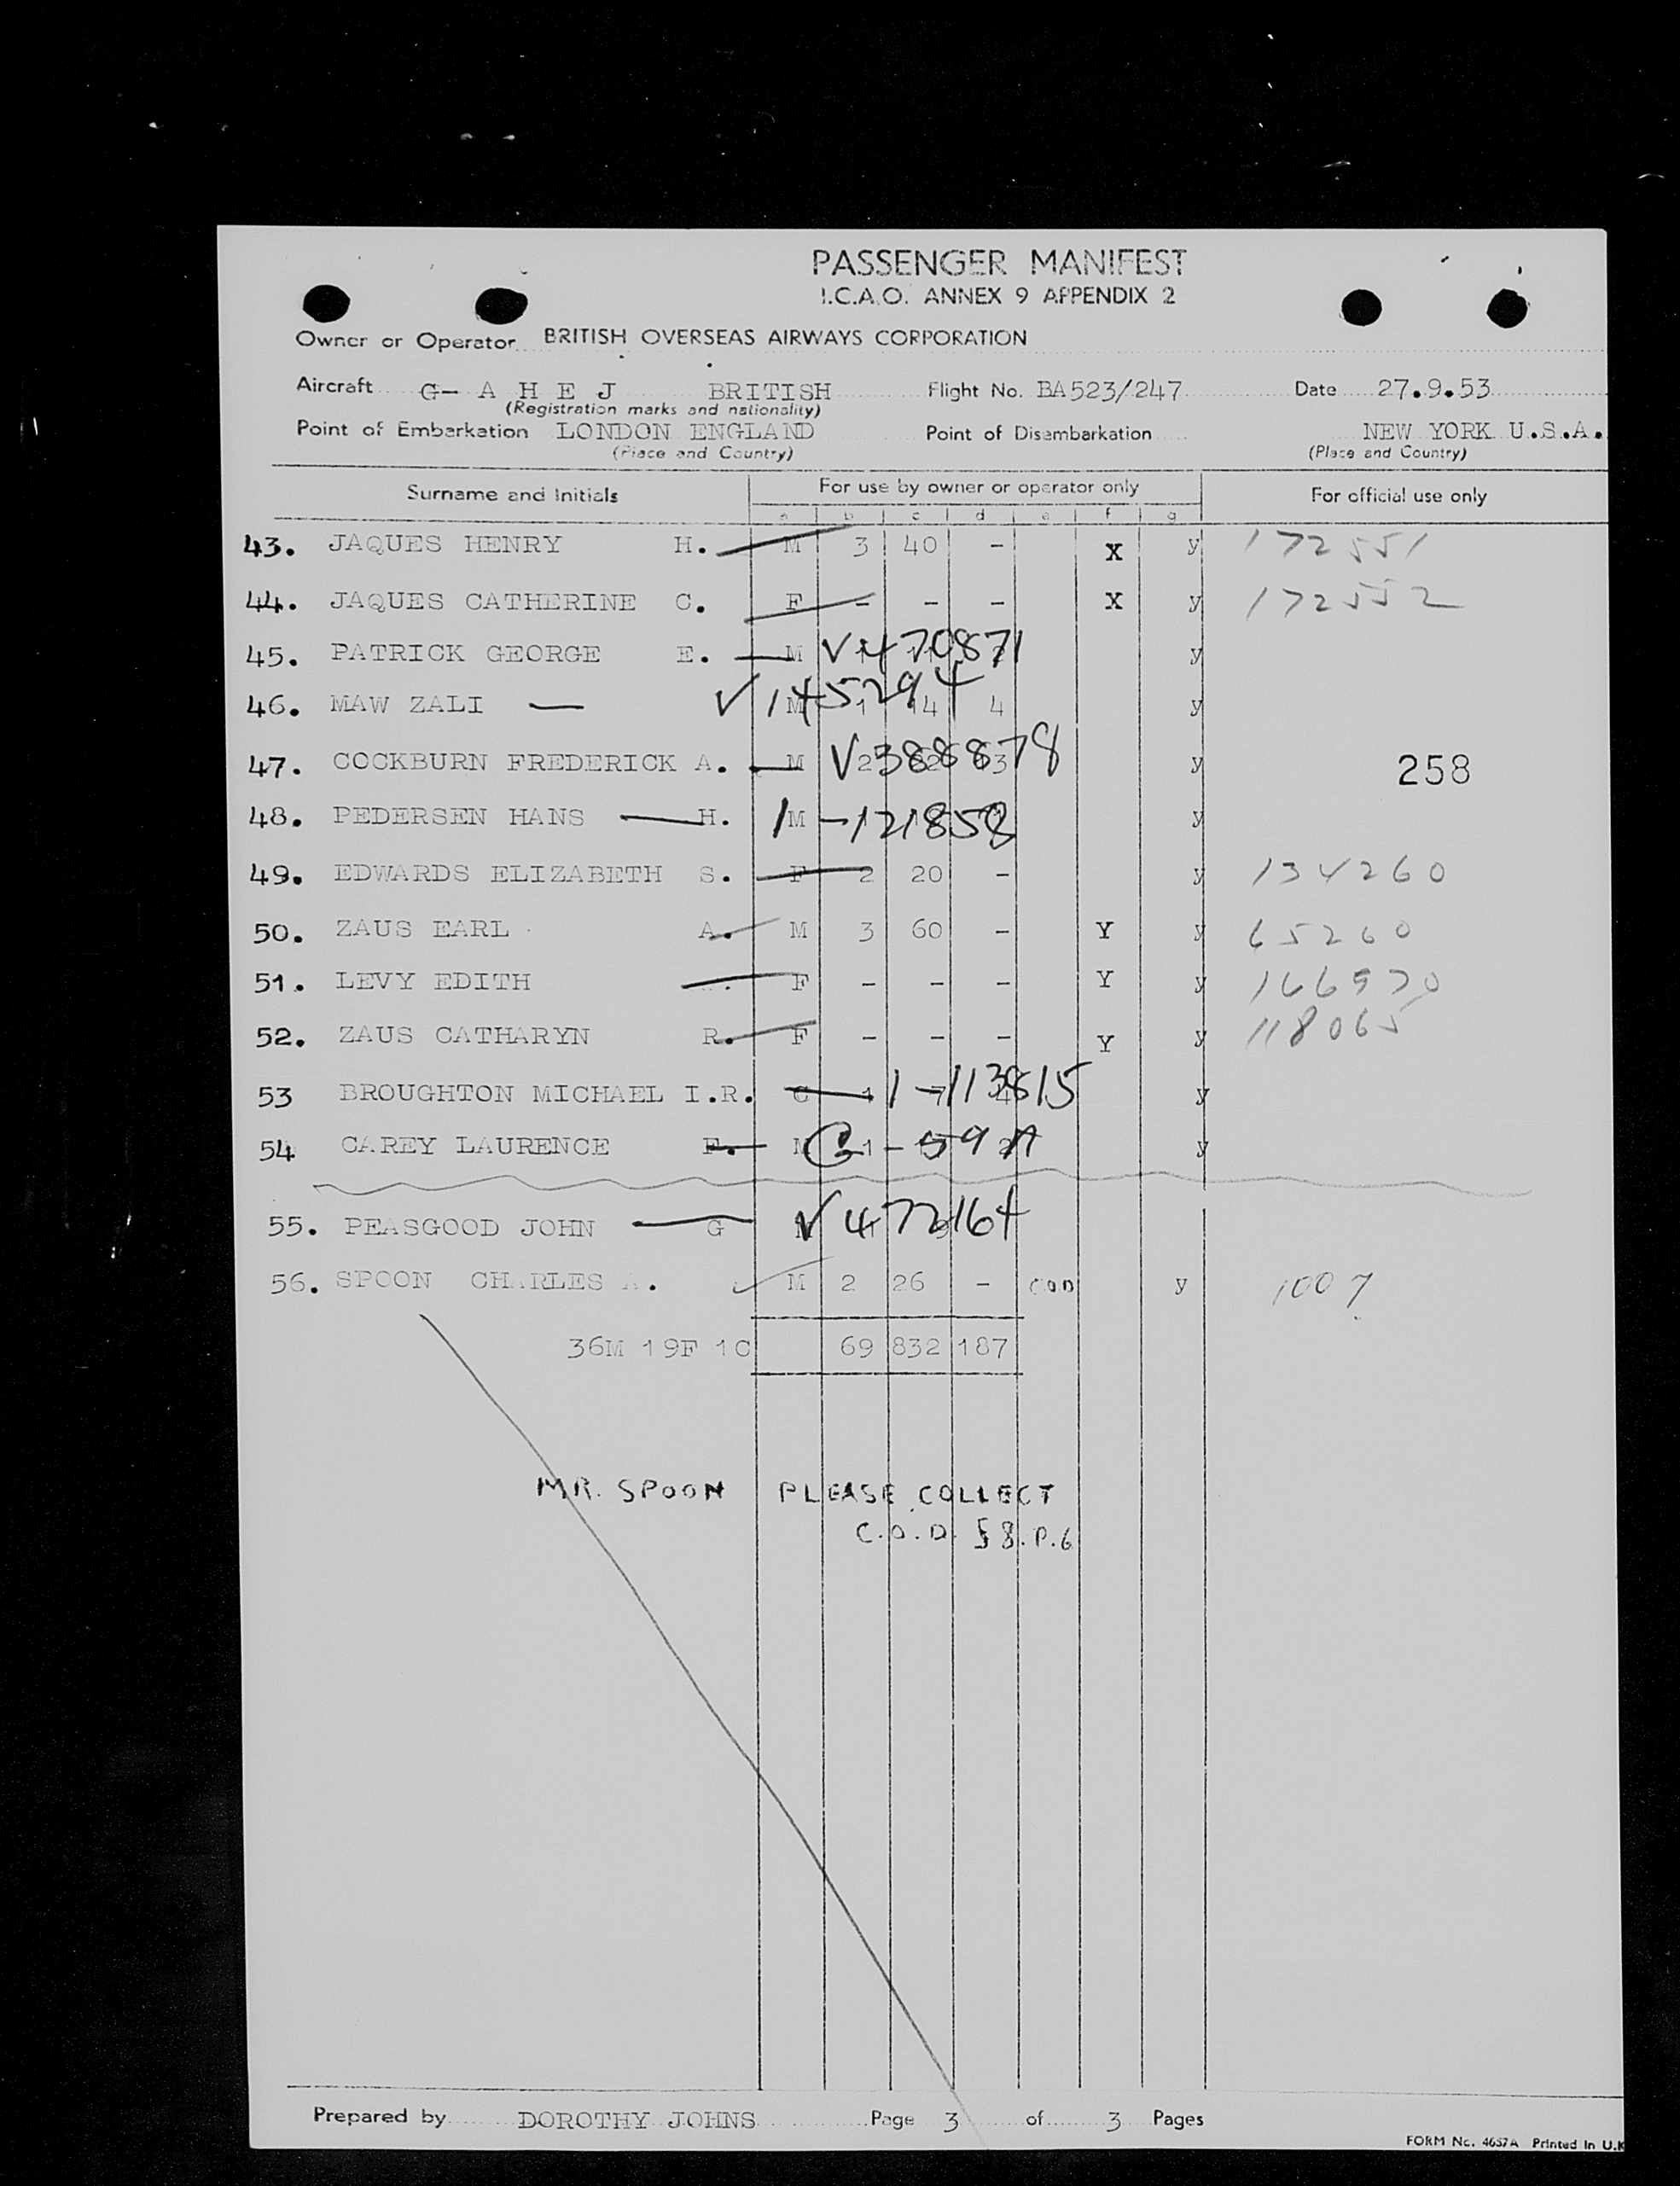 PASSENGER MANIFEST
I.C.A.O. ANNEX 9 APPENDIX 2
Owner or Operator BRITISH OVERSEAS AIRWAYS CORPORATION
Aircraft G- A H E J BRITISH Flight No. BA523/247 Date 27.9.53
(Registration marks and nationality)
Point of Embarkation LONDON ENGLAND Point of Disembarkation NEW YORK U.S.A.
(Place and Country) (Place and Country)
Surname and Initials For use by owner or operator only For official use only
a b c d e f g
43. JAQUES HENRY H. M 3 40 - X y 172551
44. JAQUES CATHERINE C. F - - - X y 172552
45. PATRICK GEORGE E. M V 470871 y
46. MAW ZALI M V 145294 1 14 4 y
47. COCKBURN FREDERICK A. M V 388878 y
258
48. PEDERSEN HANS H. M 1-121858 y
49. EDWARDS ELIZABETH S. F 2 20 - y 134260
50. ZAUS EARL A. M 3 60 - Y y 65260
51. LEVY EDITH F - - - Y y 166570
52. ZAUS CATHARYN R. F - - - Y y 118065
53 BROUGHTON MICHAEL I.R. C 1-113815 y
54 CAREY LAURENCE F. M y
55. PEASGOOD JOHN G V 472164
56. SPOON CHARLES A. M 2 26 - COD y 1007
36M 19F 1C 69 832 187
MR. SPOON PLEASE COLLECT
C.O.D. 58.P.6
Prepared by DOROTHY JOHNS Page 3 of 3 Pages
FORM No. 4657A Printed in U.K